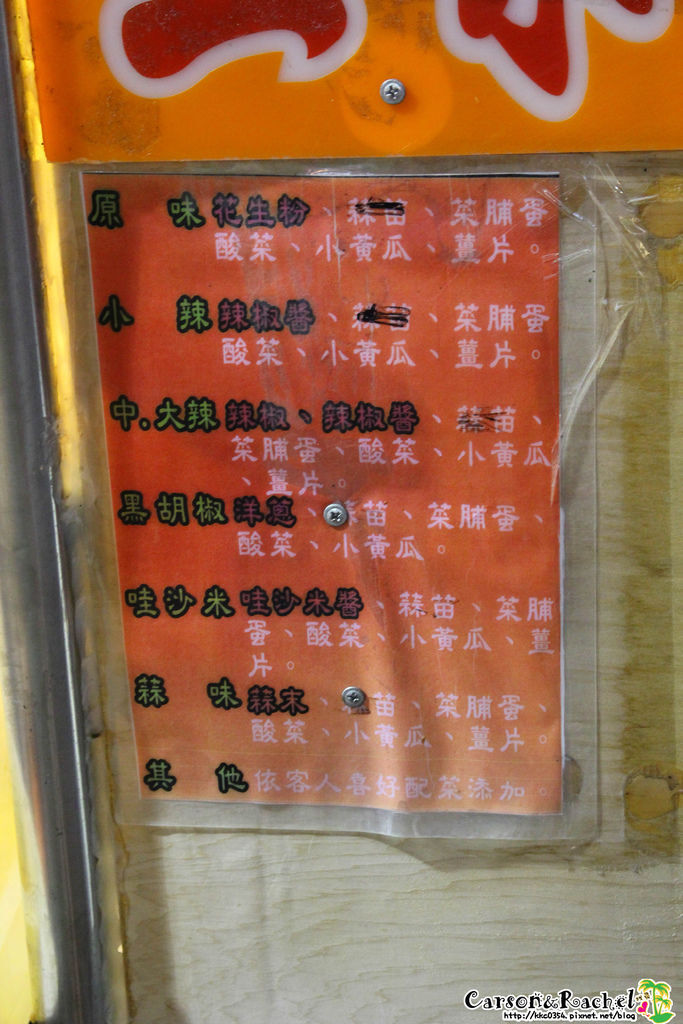 原 味 花生粉、蒜苗、菜脯蛋
酸菜、小黃瓜、薑片。
小 辣 辣椒醬、蒜苗、菜脯蛋
酸菜、小黃瓜、薑片。
中.大辣 辣椒、辣椒醬、蒜苗、
菜脯蛋、酸菜、小黃瓜
、薑片。
黑胡椒 洋蔥、蒜苗、菜脯蛋、
酸菜、小黃瓜。
哇沙米 哇沙米醬、蒜苗、菜脯
蛋、酸菜、小黃瓜、薑
片。
蒜 味 蒜末、蒜苗、菜脯蛋、
酸菜、小黃瓜、薑片。
其 他 依客人喜好配菜添加。
Carson&Rachel
http://kkc0354.pixnet.net/blog